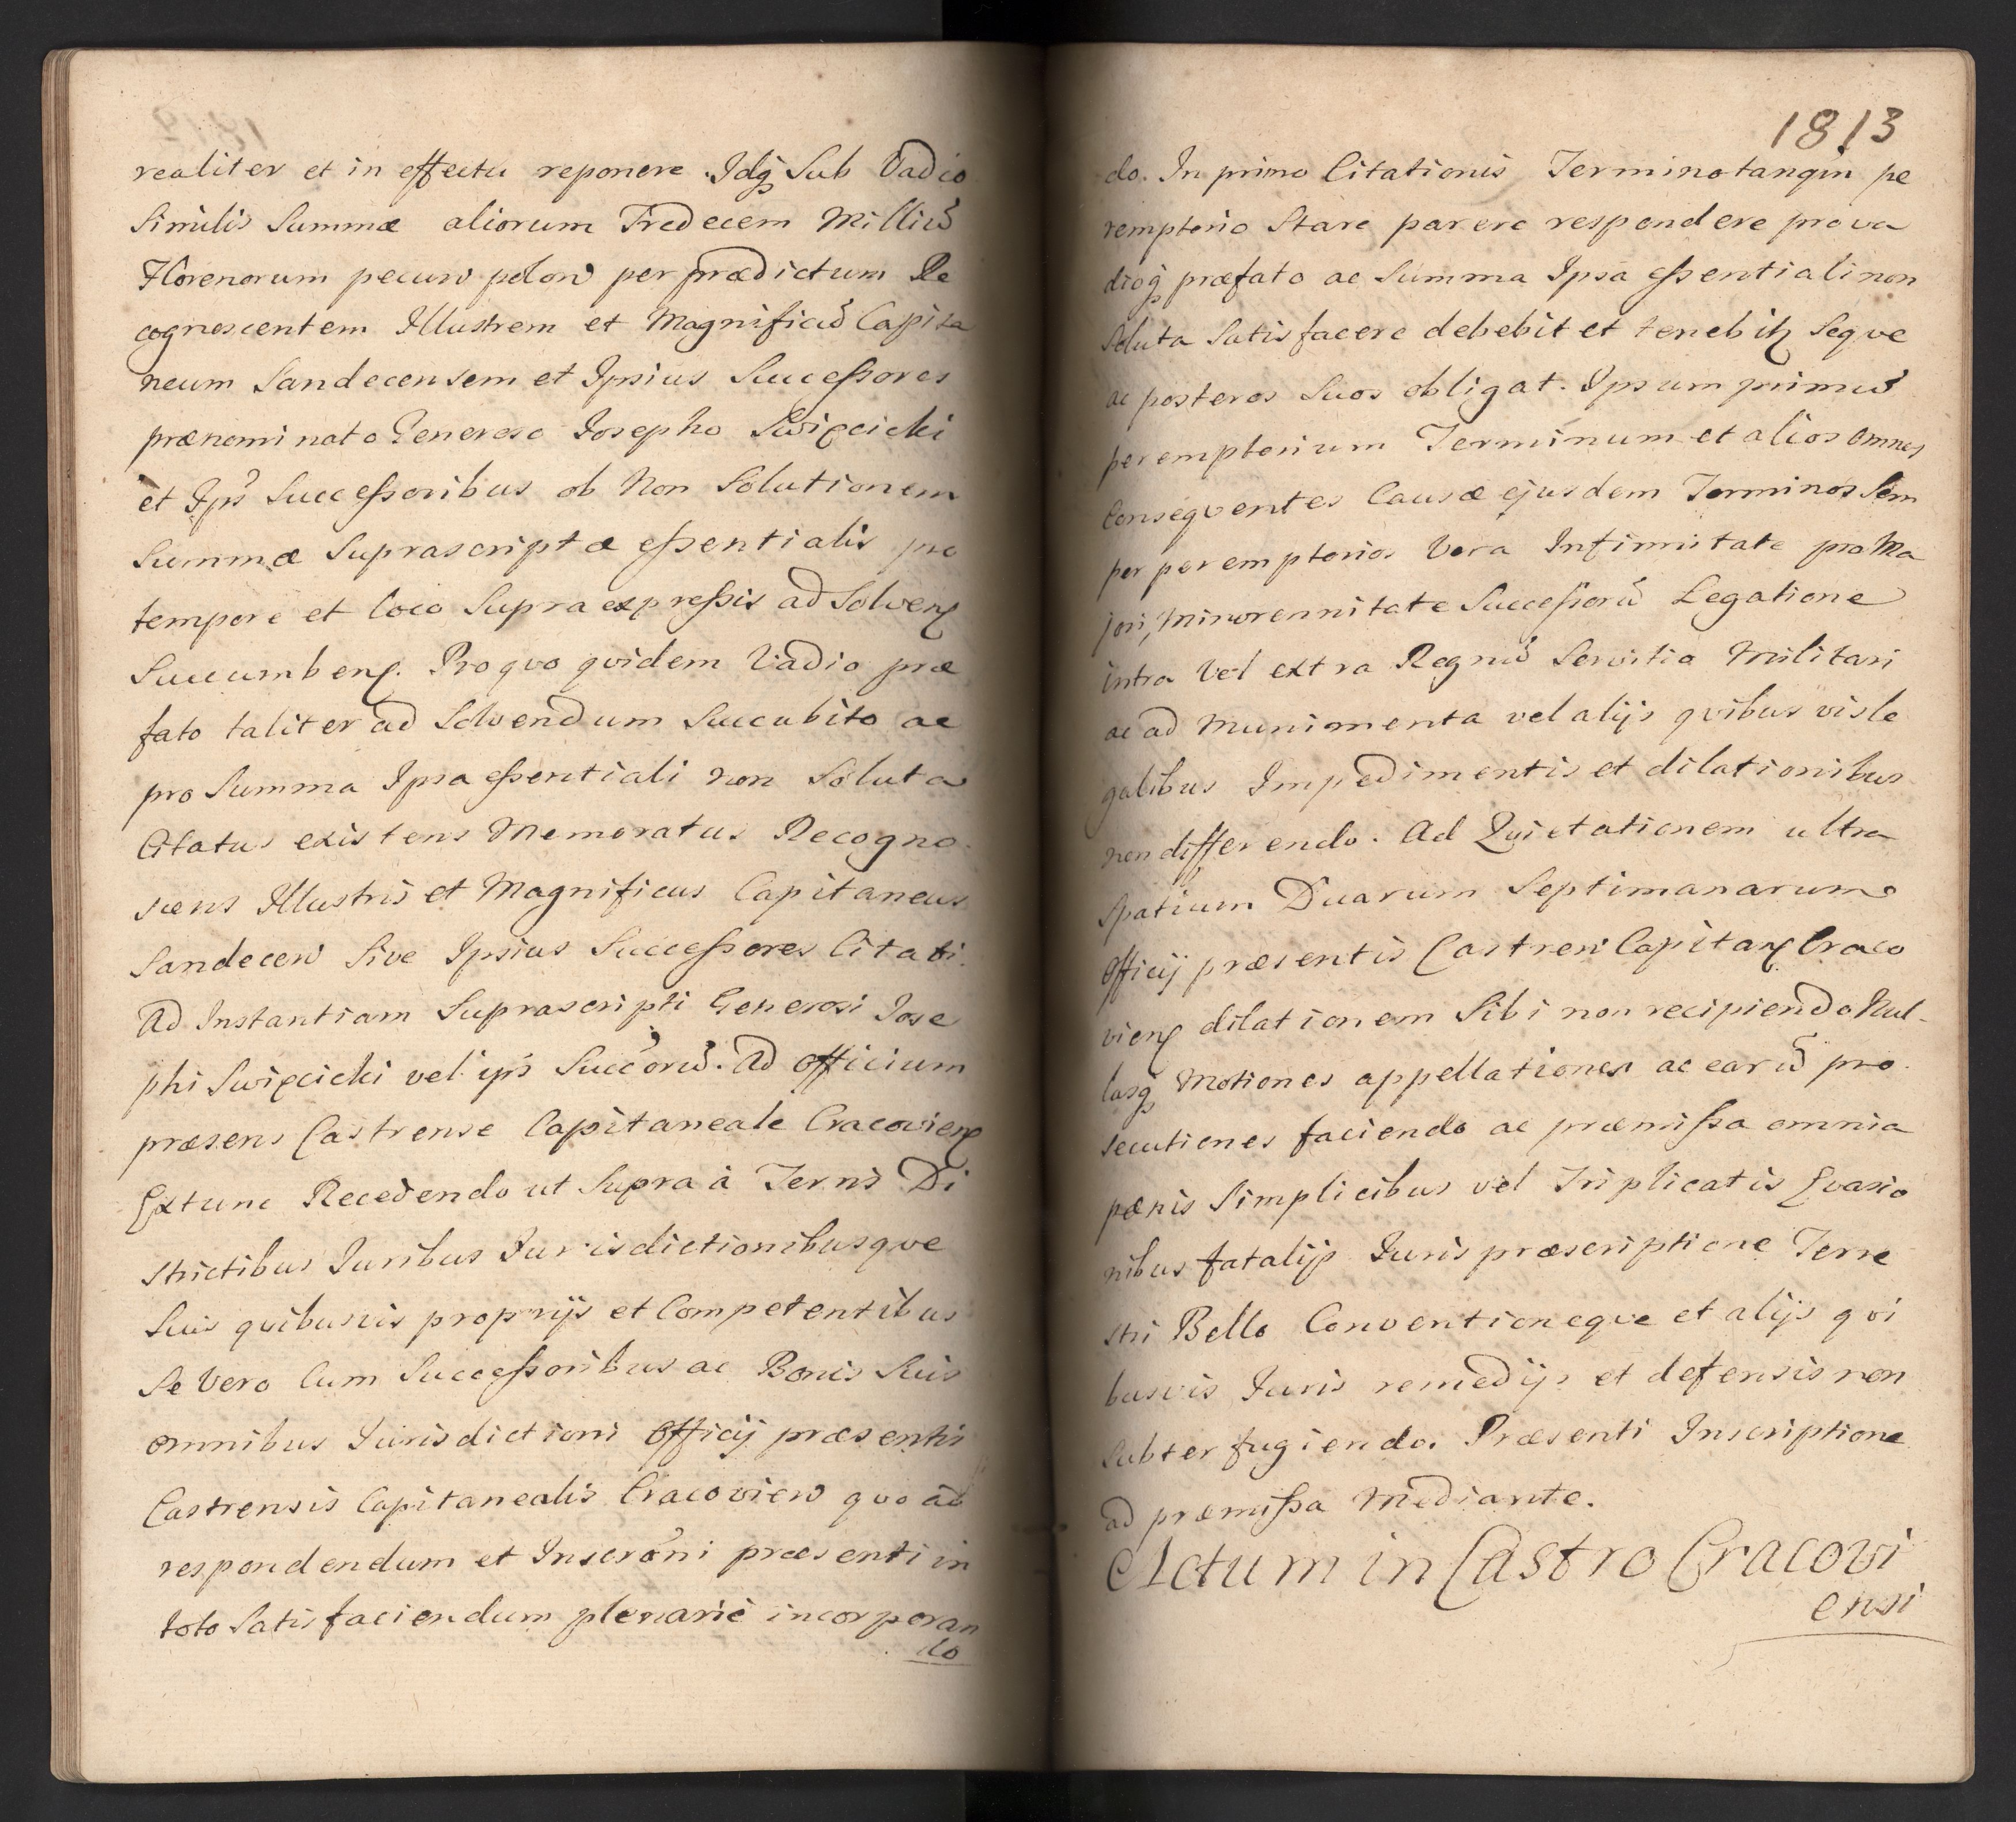 realiter et in effectu reponere. Idq3 Sub Vadio
Similis Summæ aliorum Tredecem Milliū
Florenorum pecun polon per prædictum Re
cognoscentem Illustrem et Magnificū Capita
neum Sandecensem et Ipsius Successores
prænominato Generoso Iosepho Swięcicki
et Ips Successoribus ob Non Solutionem
Summæ Suprascriptæ essentialis pro
tempore et loco Supra expressis ad Solven
Succumben. Pro quo qvidem Vadio præ
fato taliter ad Solvendum Succubito ac
pro Summa Ipsa essentiali non Soluta
Citatus existens Memoratus Recogno
scens Illustris et Magnificus Capitaneus
Sandecen Sive Ipsius Successores Citati.
Ad Instantiam Suprascripti Generosi Iose
phi Swięcicki vel ips Succorū. Ad officium
præsens Castrense Capitaneale Cracovien
Extunc Recedendo ut Supra à Terris Di
strictibus Iuribus Iurisdictionibusqve
Suis qvibusvis proprijs et Competentibus
Se Vero Cum Successoribus ac Bonis Suis
omnibus Iurisdictioni Officij præsentis
Castrensis Capitanealis Cracovien quo ad
respondendum et Inscroni præsenti in
toto Satisfaciendum plenarie incorporan
do
1813
do. In primo Citationis Termino tanqin pe
remptorio Stare parere respondere prova
dioq3 præfato ac Summa Ipsa essentiali non
Soluta Satisfacere debebit et tenebit Seqve
ac posteros Suos obligat. Ipsum primū
peremptorium Terminum et alios omnes
Conseqventes Causæ ejusdem Terminos Sem
per peremptorios Vera Infirmitate pro Ma
jori, Minorennitate Successorū Legatione
intra Vel extra Regnū Servitia Militari
ac ad Munimenta vel alijs qvibusvis le
galibus Impedimentis et dilationibus
non differendo. Ad Quietationem ultra
Spatium Duarum Septimanarum
Officij præsentis Castren Capitan Craco
vien dilationem Sibi non recipiendo Nul-
lasq3 Motiones appellationes ac earū pro
secutiones faciendo ac præmissa omnia
pænis Simplicibus vel Triplicatis Evasio
nibus fatalijs Iuris præscriptione Terre
stri Bello Conventioneqve et alijs qvi
busvis Iuris remedijs et defensis non
Subterfugiendo. Præsenti Inscriptione
ad præmissa Mediante.
Actum in Castro Cracovi
ensi